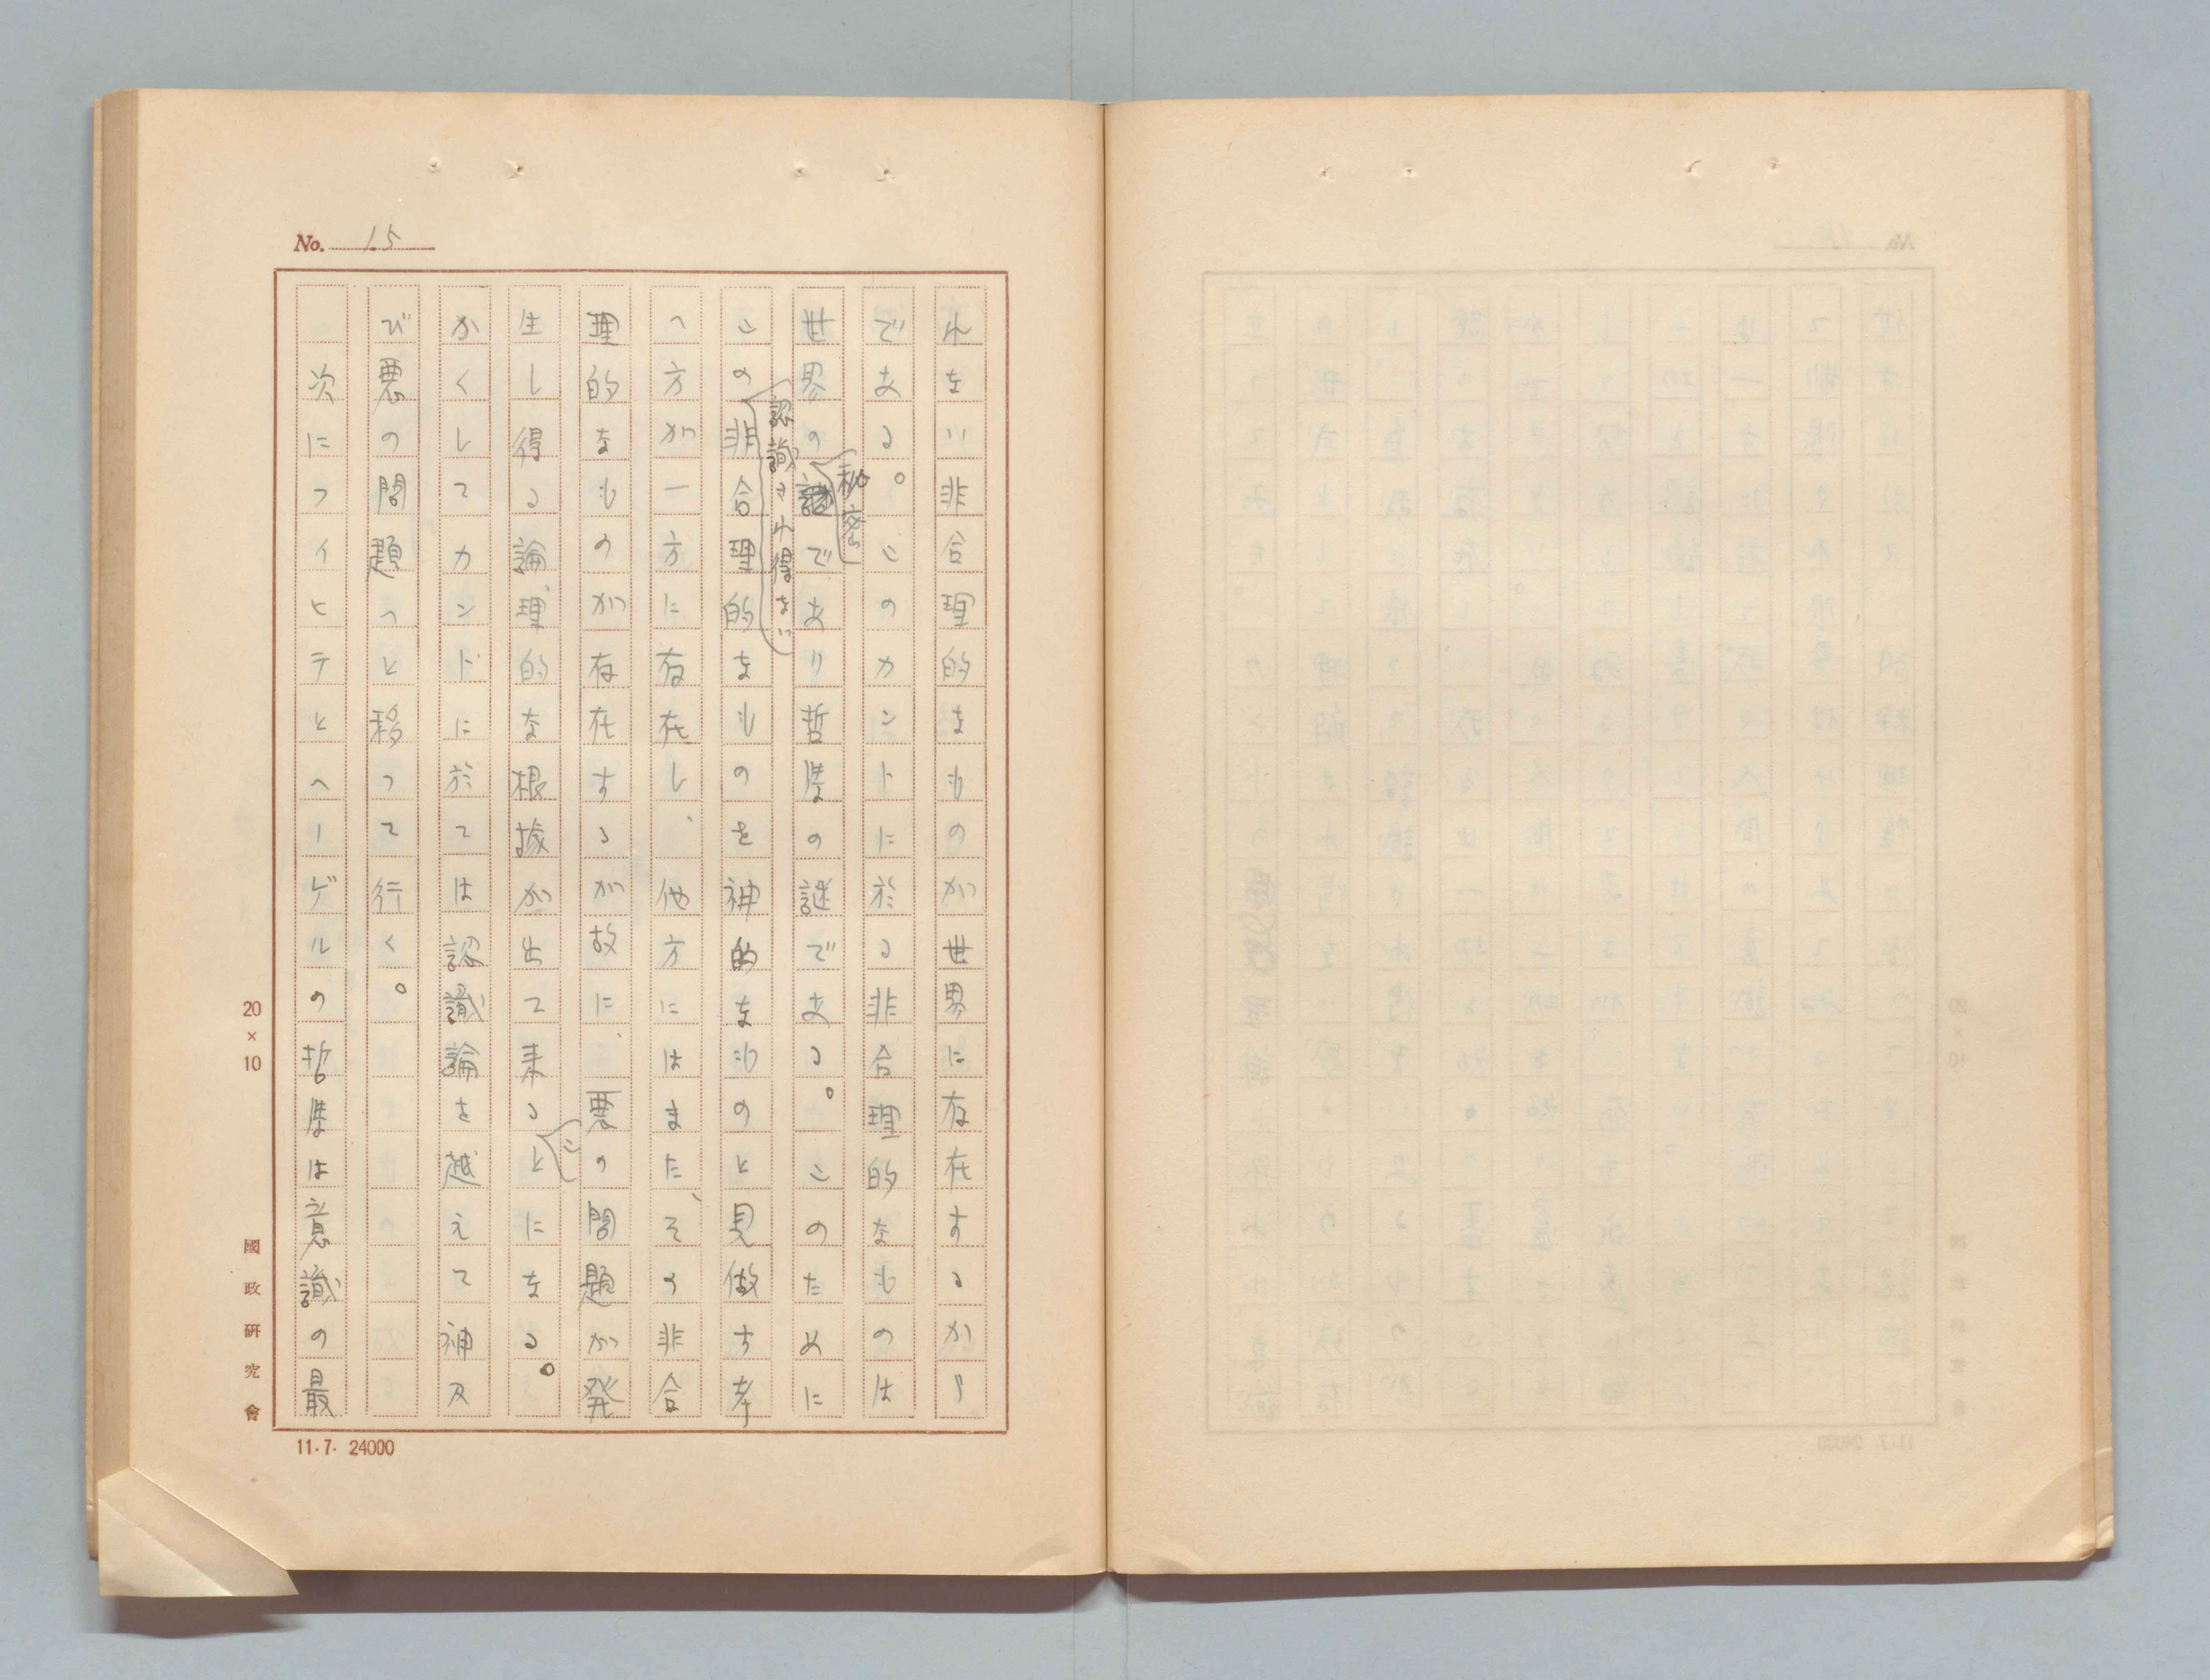 No. 15
れない非合理的なものが世界に存在するから
である。このカントに於る非合理的なものは
秘密
世界の謎であり哲学の謎である。このために
認識され得ない
この非合理的なものを神的なものと見做す考
へ方が一方に存在し、他方にはまた、その非合
理的なものが存在するが故に、悪の問題が発
生し得る論理的な根拠が出て来ることになる。
こ
かくしてカンドに於ては認識論を越えて神及
び悪の問題へと移つて行く。
次にフイヒテとヘーゲルの哲学は意識の最
20×10
國政研究會
11.7. 24000